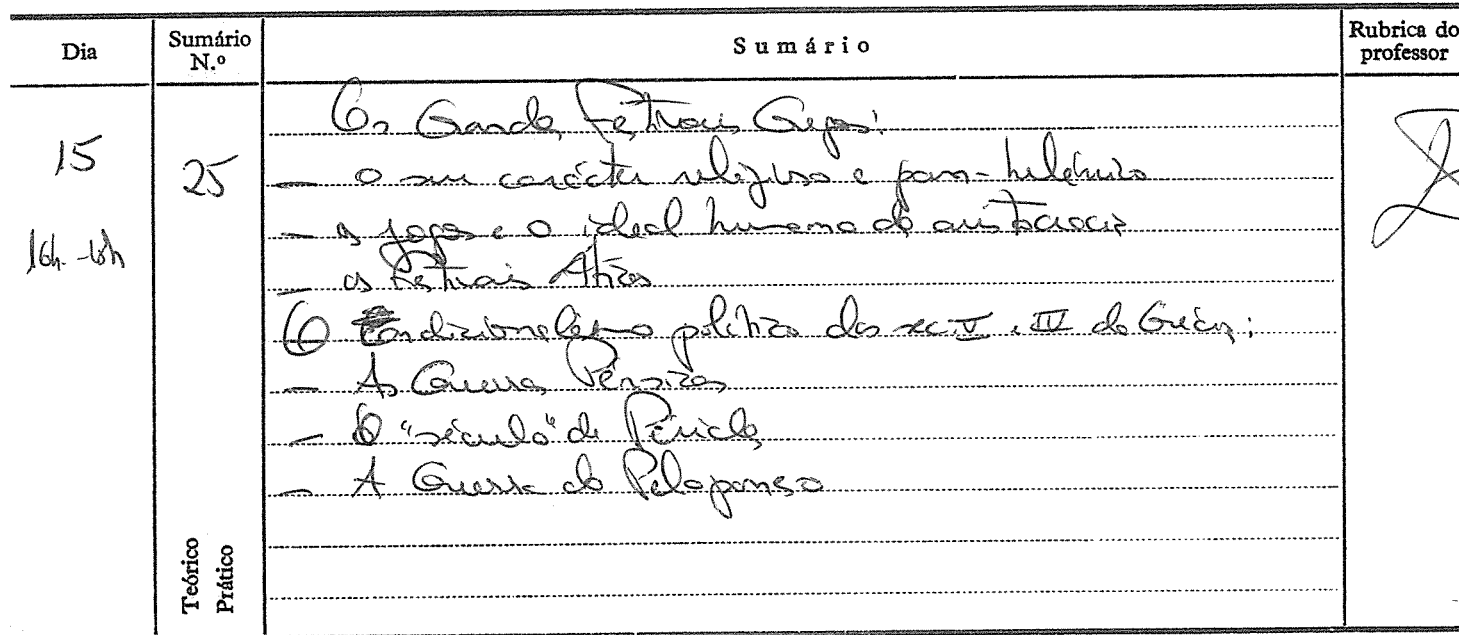 Dia
Sumário N.º
Sumário
Rubrica do professor
15
16h-18h
25
Os Grandes Festivais Gregos:
- o seu carácter religioso e pan-helénico
- os jogos e o ideal humano da aristocracia
- os Festivais Áticos
O Condicionalismo político dos sec. V e IV da Grécia:
- As Guerras Pérsicas
- O "século" de Péricles
- A Guerra do Peloponeso
Teórico
Prático